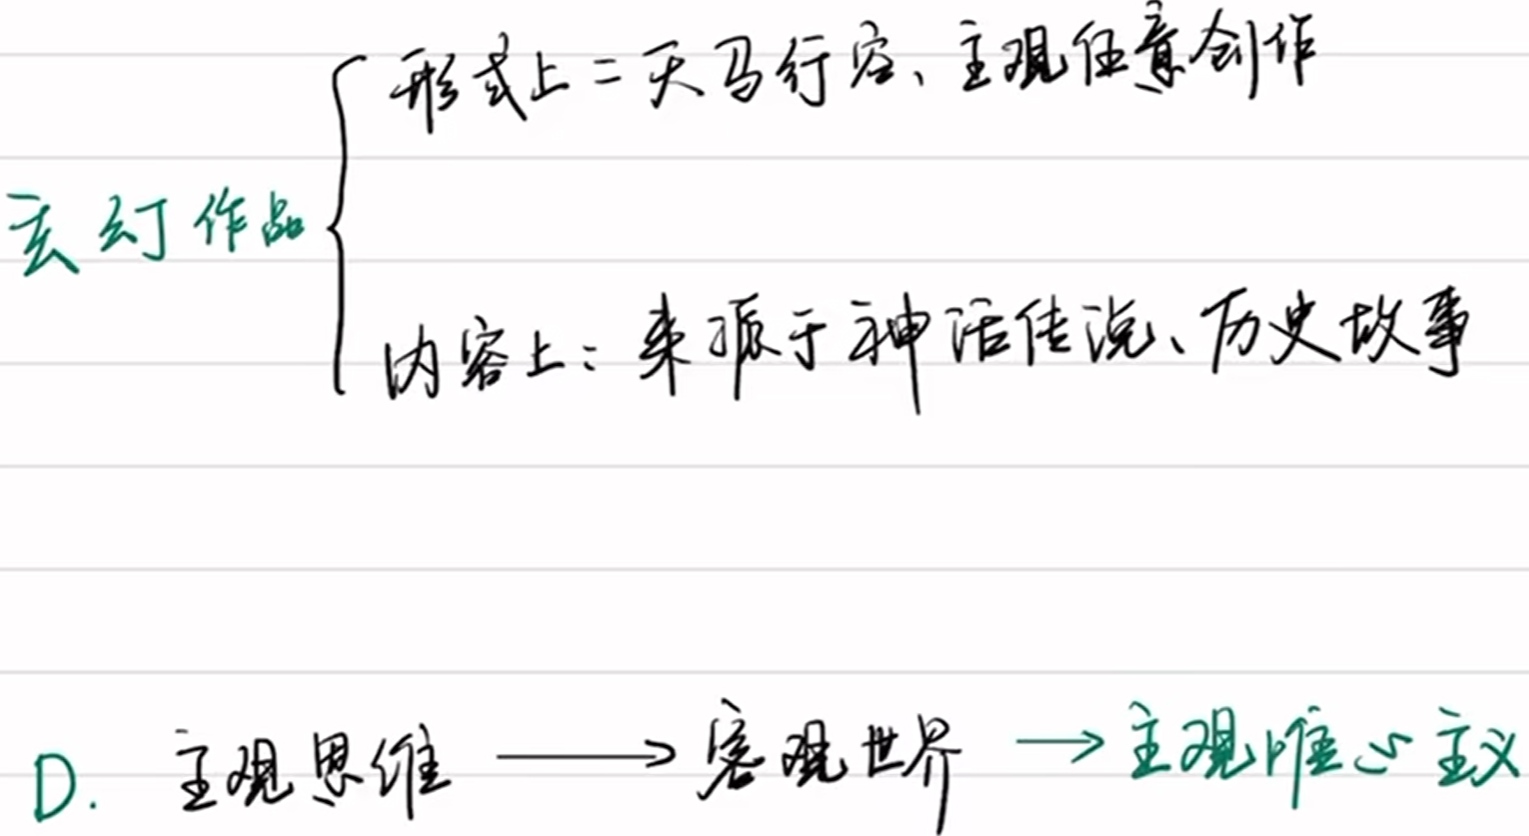 形式上:天马行空、主观任意创作
玄幻作品
内容上:来源于神话传说、历史故事
D. 主观思维 → 客观世界 → 主观唯心主义